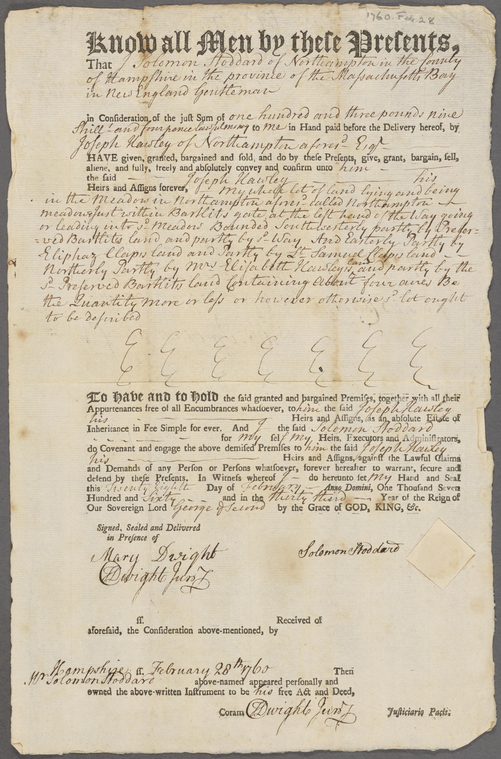 1760. Feb. 28
Know all Men by these Presents,
That I Solomon Stoddard of Northampton in the County
of Hampshire in the province of the Massachusetts Bay
in New England Gentleman
in Consideration of the just Sum of one hundred and three pounds nine
Shill. and four pence lawful money to me in Hand paid before the Delivery hereof, by
Joseph Hawley of Northampton afores.d Esq.r
HAVE given, granted, bargained and sold, and do by these Presents, give, grant, bargain, sell,
aliene, and fully, freely and absolutely convey and confirm unto him
the said Joseph Hawley his
Heirs and Assigns forever, My whole lot of land lying and being
in the Meadow in Northampton afores.d called Northampton
meadow just within Bartlits gate at the left hand of the Way going
or leading into s.d Meadow Bounded Southwesterly partly by Preser-
=ved Bartlits land and partly by s.d Way And Easterly Partly by
Eliphaz Claps land and Partly by Lt Samuel Claps land
Northerly Partly by Mrs Elizabeth Hawleys land and partly by the
s.d Preserved Bartlits land Containing About four acres Be
the Quantity more or less or however otherwise s.d lot ought
to be described
To Have and to Hold the said granted and bargained Premises, together with all their
Appurtenances free of all Encumbrances whatsoever, to him the said Joseph Hawley
his Heirs and Assigns, as an absolute Estate of
Inheritance in Fee Simple for ever. And I the said Solomon Stoddard
for my self my Heirs, Executors and Administrators,
do Covenant and engage the above demised Premises to him the said Joseph Hawley
his Heirs and Assigns, against the Lawful Claims
and Demands of any Person or Persons whatsoever, forever hereafter to warrant, secure and
defend by these Presents. In Witness whereof I do hereunto set my Hand and Seal
this Twenty Eighth Day of February Anno Domini, One Thousand Seven
Hundred and Sixty and in the thirty third Year of the Reign of
Our Sovereign Lord George y.e Second by the Grace of GOD, KING, &c.
Signed, Sealed and Delivered
in Presence of
Mary Dwight Solomon Stoddard
Dwight Jun.r
ss. Received of
aforesaid, the Consideration above-mentioned, by
Hampshire ss. February 28th 1760 Then
Mr Solomon Stoddard above-named appeared personally and
owned the above-written Instrument to be his free Act and Deed,
Coram Dwight Jun.r Justiciario Pacis.